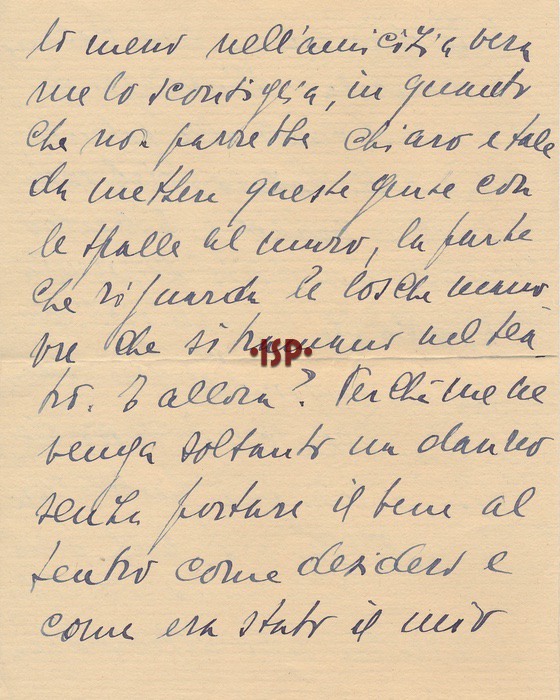 lo meno nell'amicizia vera
me lo sconsiglia, in quanto
che non sarrebbe chiaro e tale
da mettere queste gente con
le spalle al muro, la parte
che riguarda le losche mano
vre che si tramano nel tea
tro. E allora? Perchè me ne
venga soltanto un danno
senza portare il bene al
teatro come desidero e
come era stato il mio
·ISP·